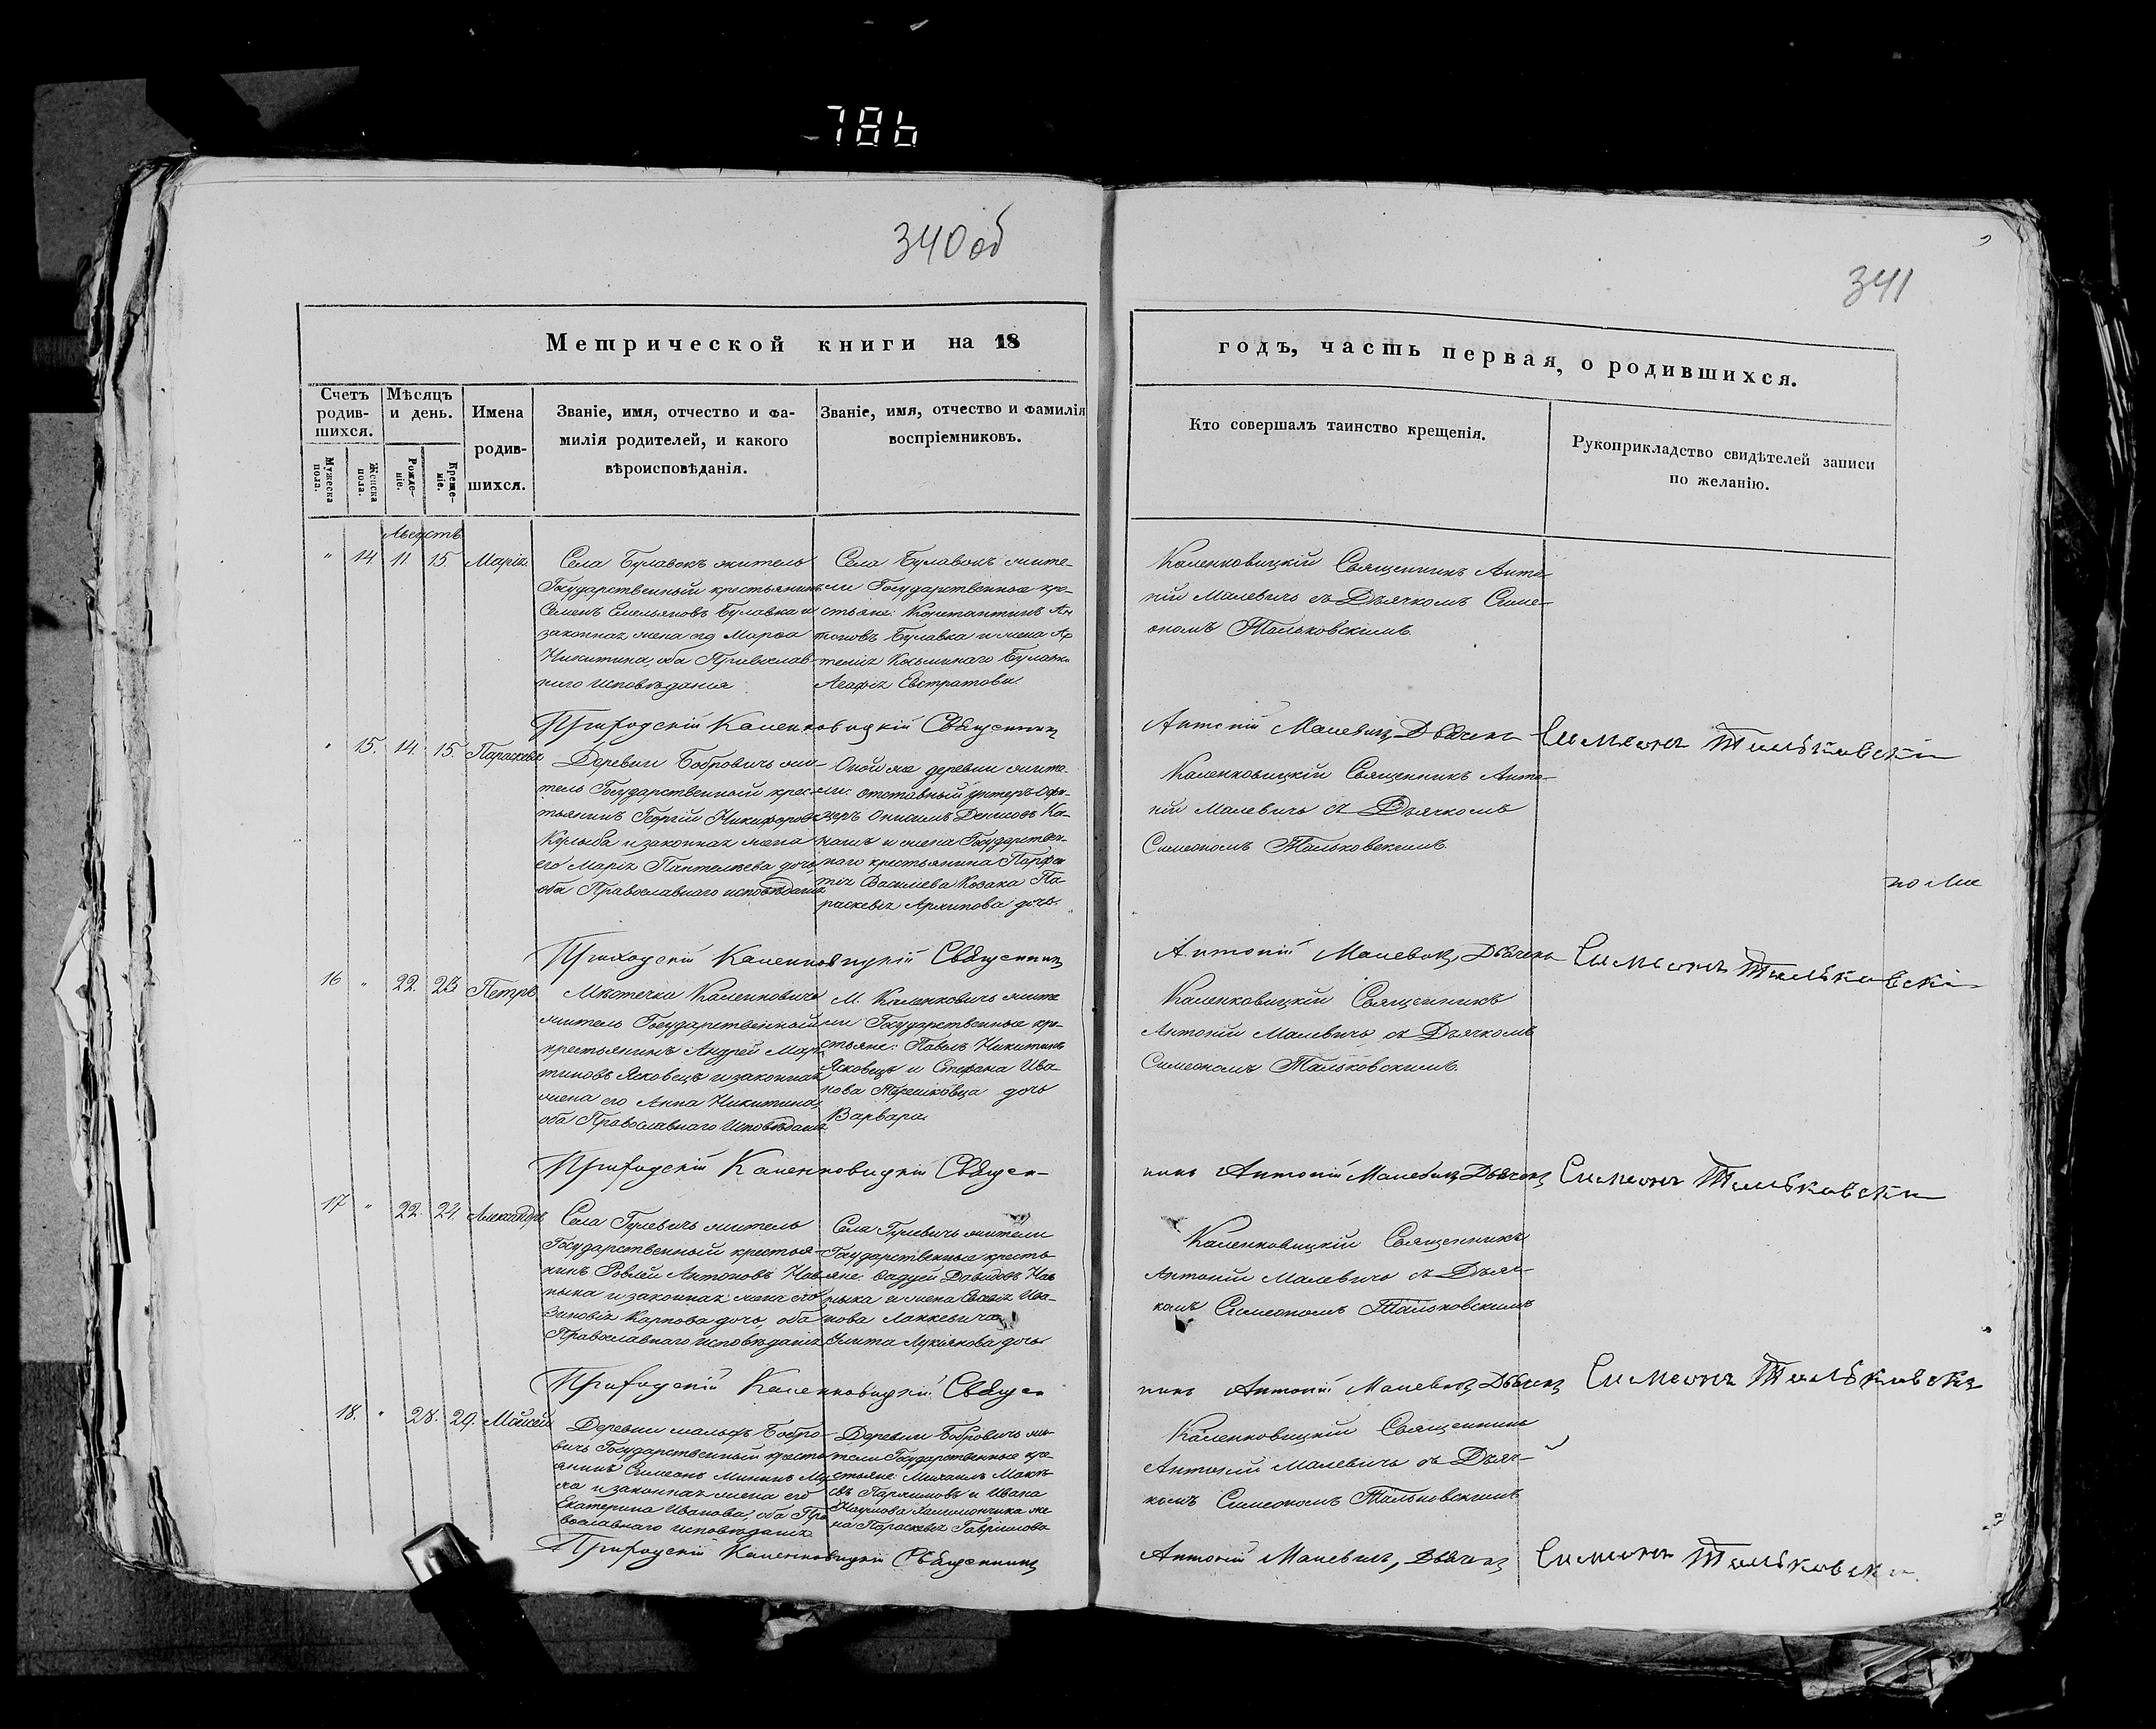 786
340 об
341
Метрической книги на 18
годъ, часть первая, о родившихся.
Счетъ родив-шихся.
Мужеска пола.
Женска пола.
Мѣсяцъ и день.
Рожде-ніе.
Креще-ніе.
Имена родив-шихся.
Званіе, имя, отчество и фа-
милія родителей, и какого
вѣроисповѣданія.
Званіе, имя, отчество и фамилія
воспріемниковъ.
Кто совершалъ таинство крещенія.
Рукоприкладство свидѣтелей записи
по желанію.
Августъ
" 14 11. 15. Марія
Села Булавокъ житель
Государственный крестьянинъ
Семенъ Емельяновъ Булавка и
законная жена его Марѳа
Никитина, оба Православ-
наго исповѣданія
Села Булавокъ жите-
ли Государственные кре-
стьяне: Константинъ Ан
тоновъ Булавка и жена Ар
темія Козьминаго Булавки
Агафія Евстратова.
Каленковицкій Священникъ Анто-
ній Малевичъ съ Дьячкомъ Симе-
ономъ Тальковскимъ.
Приходскій Каленковицкій Священникъ
Антоній Малевичъ, Дьячекъ Симеонъ Тальковскій
" 15. 14. 15. Параскева
Деревни Бобровичъ жи-
тель Государственный крес-
тьянинъ Георгій Никифоровъ
Кулыба и законная жена
его Марія Пантелеева дочь
оба Православнаго исповѣданія
Оной же деревни жите-
ли: отставный унтеръ Офи-
церъ Онисимъ Денисовъ Ка-
и жена Государствен-
наго крестьянина
Василіева Козака Па
раскевія Архипова дочь.
Каленковицкій Священникъ Анто-
ній Малевичъ съ Дьячкомъ
Симеономъ Тальковскимъ.
Приходскій Каленковицкій Священникъ
Антоній Малевичъ, Дьячекъ Симеонъ Тальковскій
16 " 22. 23 Петръ
Мѣстечка Каленковичъ
житель Государственный
крестьянинъ Андрей Мар-
тиновъ Яковецъ и законная
жена его Анна Никитина,
оба Православнаго Исповѣданія
М. Каленковичъ жите
ли Государственные кре-
стьяне: Павелъ Никитинъ
Яковецъ и Стефана Ива-
нова Терешковца дочь
Варвара.
Каленковицкій Священникъ
Антоній Малевичъ съ Дьячкомъ
Симеономъ Тальковскимъ.
Приходскій Каленковицкій Священ-
никъ Антоній Малевичъ, Дьячекъ Симеонъ Тальковскій
17 " 22. 24. Александръ
Села Гулевичъ житель
Государственный крестья-
нинъ Антоновъ
и законная жена его
Зиновія Карпова дочь, оба
Православнаго исповѣданія
Села Гулевичъ жители
Государственные кресть
яне: Давидовъ
и жена Ива-
нова
Улита Лукьянова дочь
Каленковицкій Священникъ
Антоній Малевичъ съ Дьяч-
комъ Симеономъ Тальковскимъ
Приходскій Каленковицкій Священ
никъ Антоній Малевичъ, Дьячекъ Симеонъ Тальковскій
18. " 28. 29. Моѵсей
Деревни малыхъ Бобро-
вичъ Государственный кресть
янинъ Симеонъ Мининъ
и законная жена его
Екатерина Иванова, оба Пра
вославнаго исповѣданія
Деревни Бобровичъ жи-
тели Государственные кре-
стьяне: Михаилъ
и Ивана
Наумова же
на Параскевія Гавріилова
Каленковицкій Священникъ
Антоній Малевичъ съ Дьяч-
комъ Симеономъ Тальковскимъ
Приходскій Каленковицкій Священникъ
Антоній Малевичъ, Дьячекъ Симеонъ Тальковскій